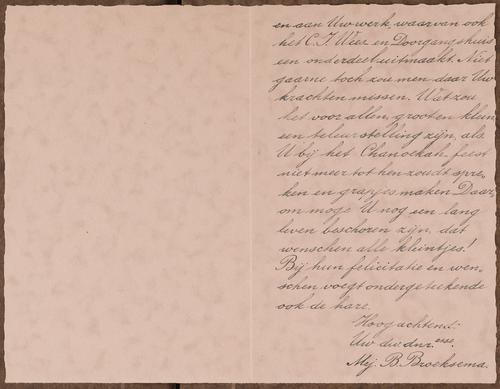 en aan Uw werk, waarvan ook
het C. I. Wees en Doorgangshuis
een onderdeel uitmaakt. Niet
gaarne toch zou men daar Uw
krachten missen. Wat zou
het voor allen, groot en klein
een teleurstelling zijn, als
U bij het Chanoekah-feest
niet meer tot hen zoudt spre-
ken en grapjes maken. Daar-
om moge U nog een lang
leven beschoren zijn, dat
wenschen alle kleintjes!
Bij hun felicitatie en wen-
schen voegt ondergeteekende
ook de hare.
Hoogachtend:
Uw dw. dnr.esse.
Mej: B. Broeksema.